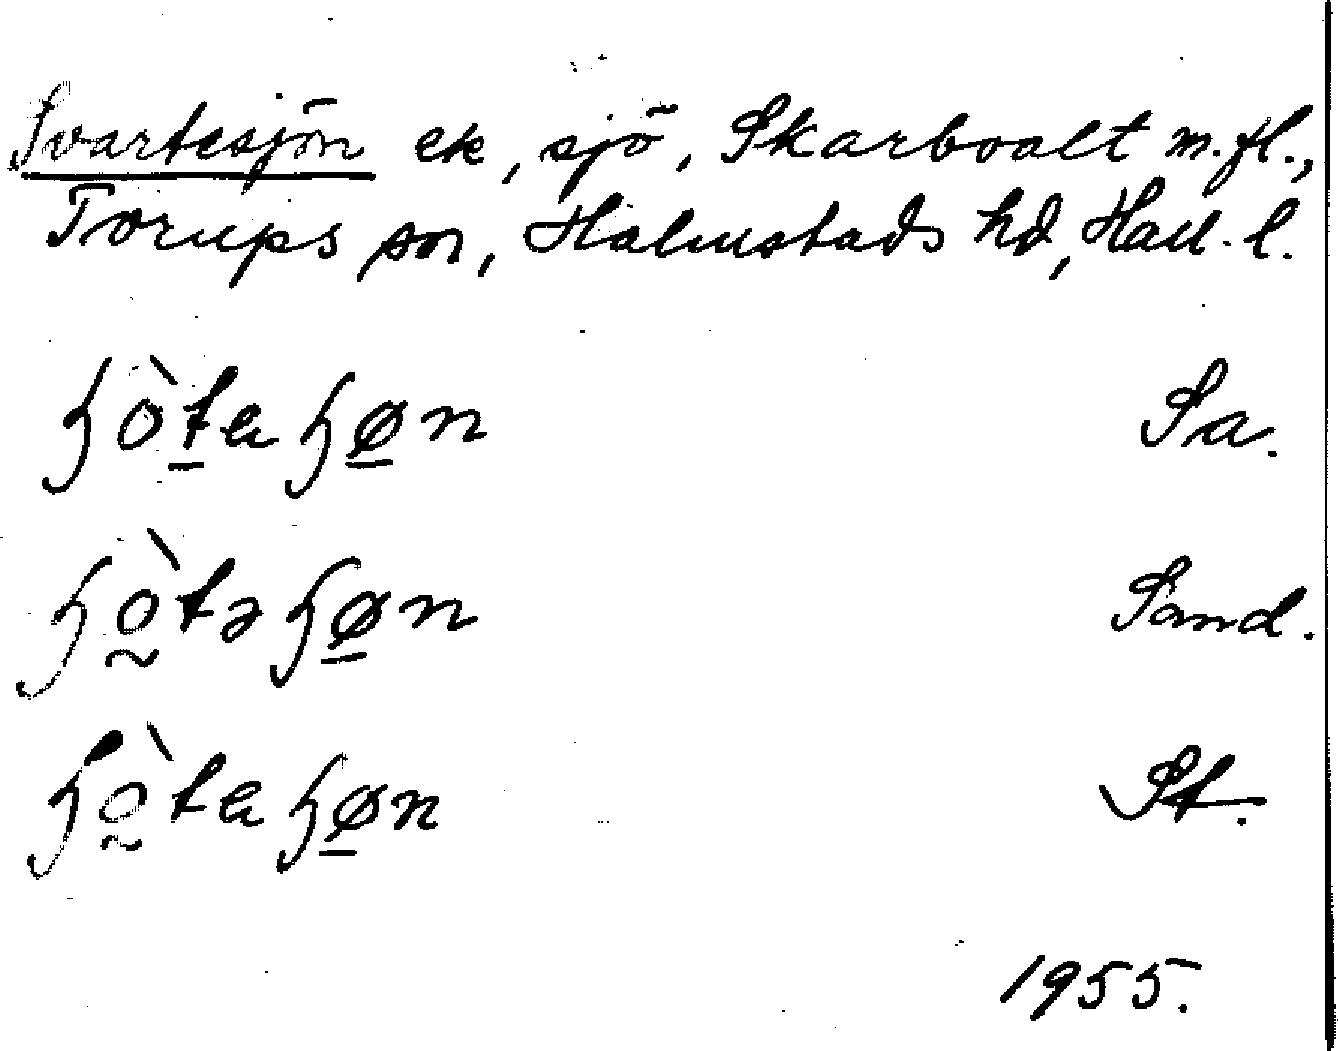 Svartesjön ek, sjö, Skarboalt m.fl.,
Torups sn, Halmstads hd, Hall. l.
ɧò̱ta ɧø̱n Sa.
ɧò̰tə ɧø̱n Sand.
ɧò̰ta ɧø̱n St.
1955.